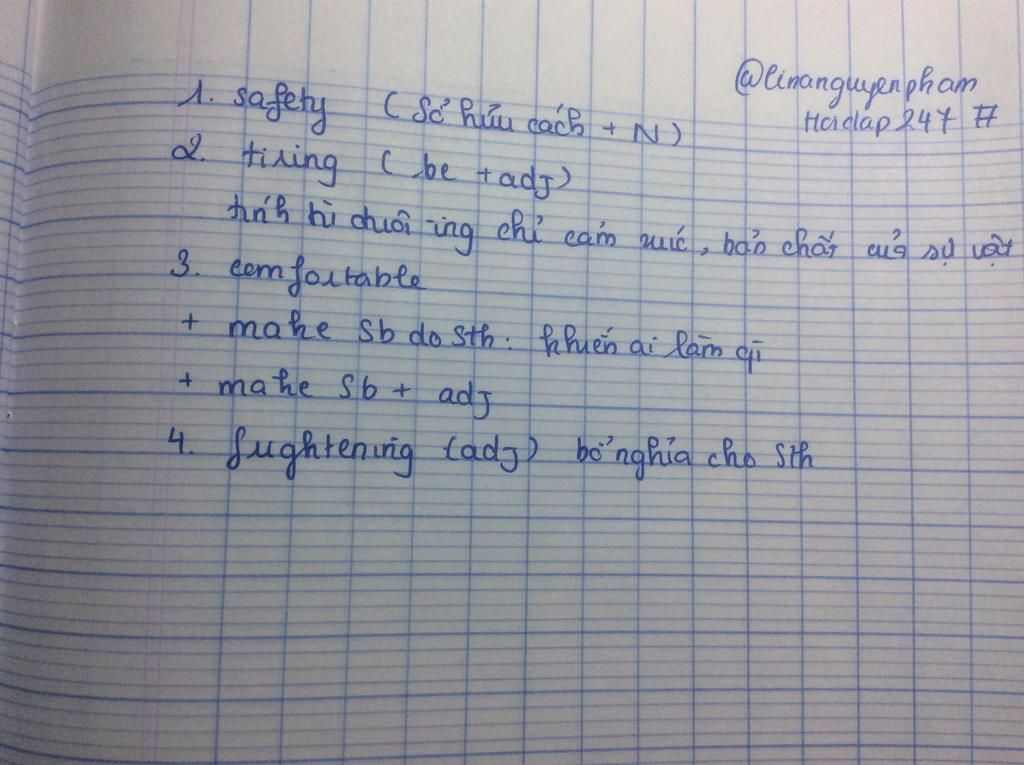 @linanguyenpham
Hoidap247 #
1. safety (Sở hữu cách + N)
2. tiring ( be + adj)
tính từ đuôi -ing chỉ cảm xúc, bản chất của sự vật
3. comfortable
+ make sb do sth: khiến ai làm gì
+ make sb + adj
4. frightening (adj) bổ nghĩa cho sth